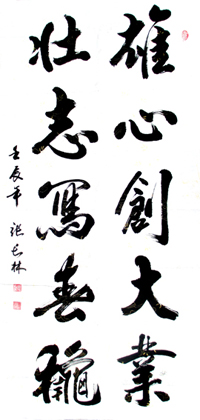 雄心創大業
壮志寫春龝
壬辰年 張長林